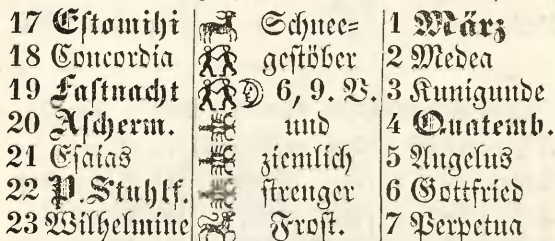 17 Eſtomihi Schnee= 1 März
18 Concordia geſtöber 2 Medea
19 Faſtnacht 6, 9. V. 3 Kunigunde
20 Aſcherm. und 4 Quatemb.
21 Eſaias ziemlich 5 Angelus
22 P. Stuhlf. ſtrenger 6 Gottfried
23 Wilhelmine Froſt. 7 Perpetua